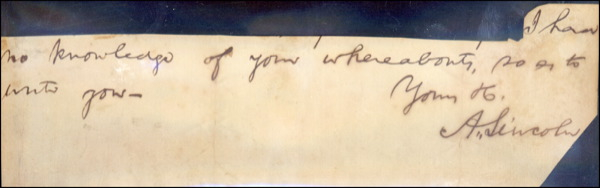 I have
no knowledge of your whereabouts, so as to
write you—
Yours &c.
A. Lincoln